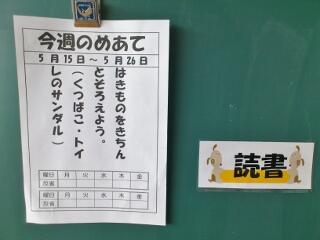 今週のめあて
5月15日～5月26日
はきものをきちん
とそろえよう。
（くつばこ・トイ
レのサンダル）
曜日 月 火 水 木 金
反省
曜日 月 火 水 木 金
反省
読書